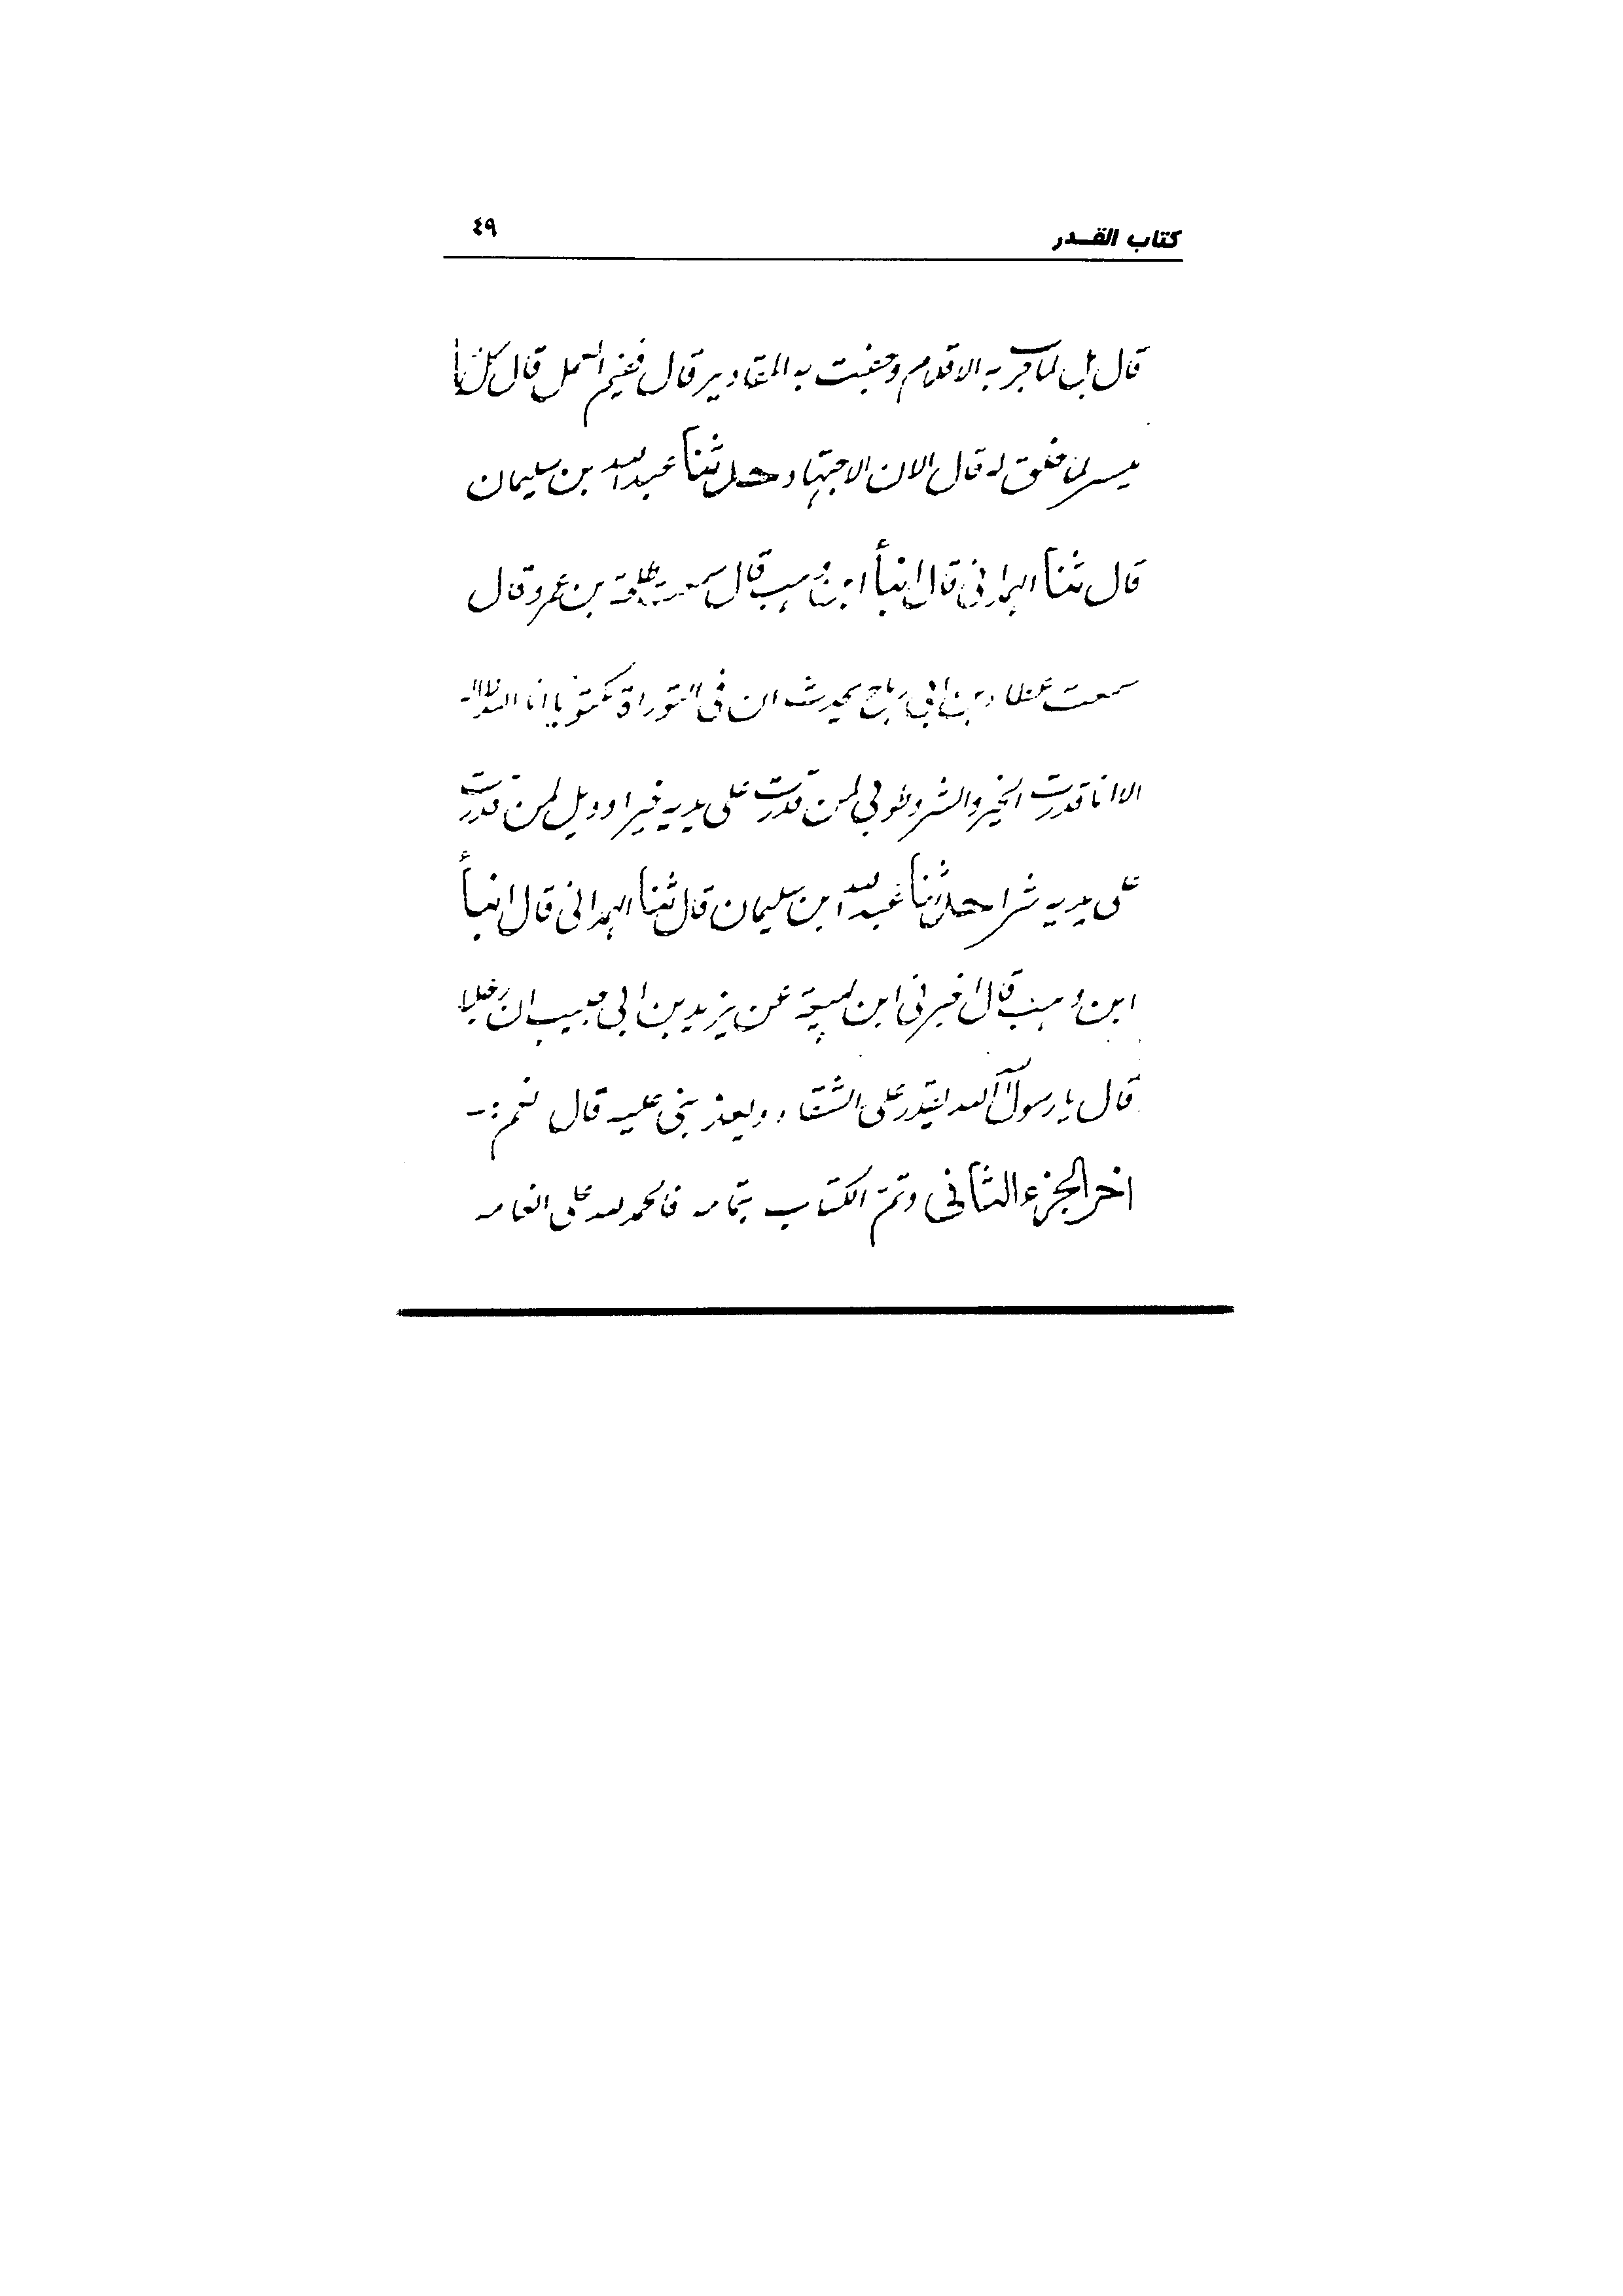 كتاب القـدر
٤٩
قال بل لما جرت به الاقلام وجفت به المقادير قال ففيم العمل قال كل
ميسر لما خلق له قال الان الاجتهاد حدثنا عبد الله بن سليمان
قال ثنا الهمدانى قال انبأ ابن وهب قال سمعت طلحة بن عمرو قال
سمعت عطاء بن ابي رباح يحدث ان فى التوراة مكتوبا انا الله لا اله
الا انا قدرت الخير والشر وطوبي لمن قدرت على يديه خيرا وويل لمن قدرت
على يديه شرا حدثنا عبد الله بن سليمان قال ثنا الهمدانى قال انبأ
ابن وهب قال اخبرنى ابن لهيعة عن يزيد بن ابي حبيب ان رجلا
قال يا رسول الله ايقدر على الشقاء ويعذبنى عليه قال نعم :-
اخر الجزء الثانى وتم الكتاب بتمامه فالحمد لله على انعامه